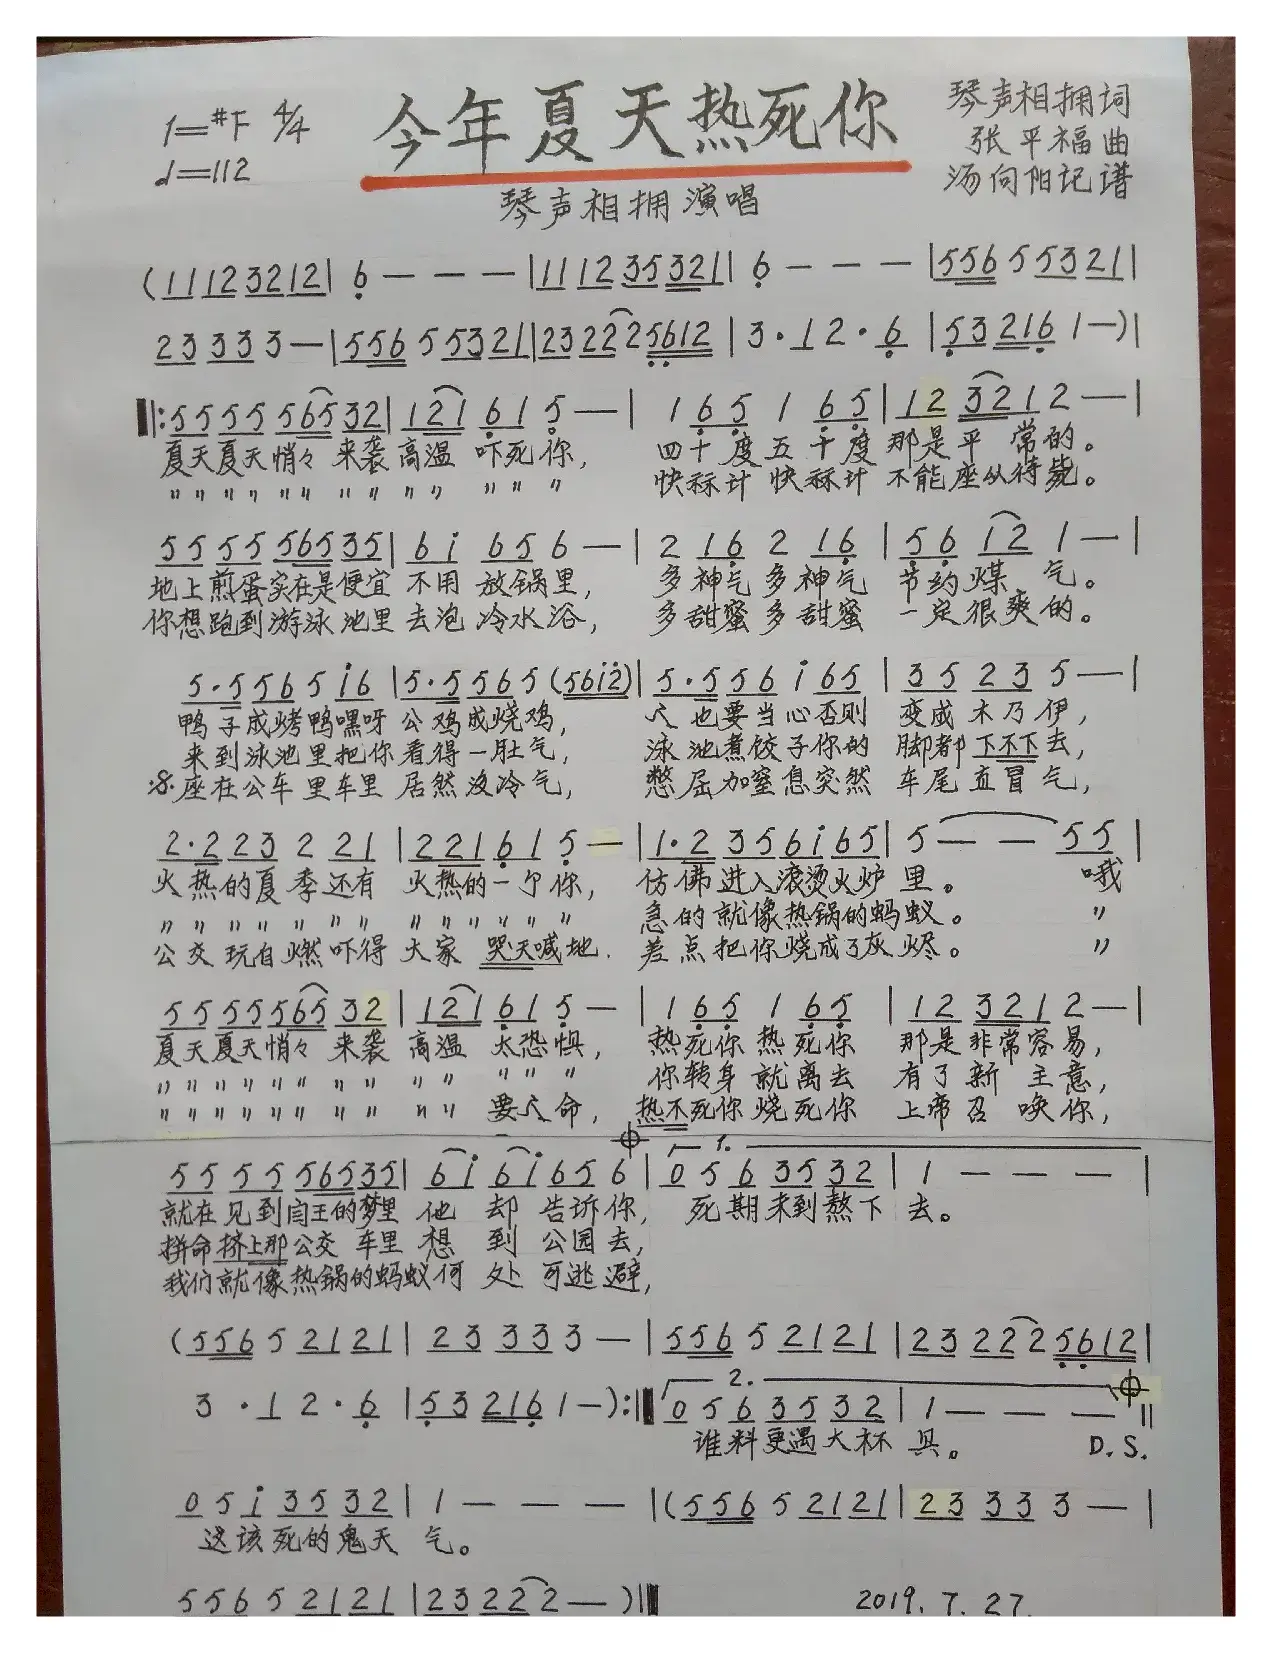 今年夏天热死你
1=#F 4/4
♩=112
琴声相拥词
张平福曲
汤向阳记谱
琴声相拥演唱
(1112 3212| 6 — — — |1112 35321| 6 — — — |556 5 5321|
23 33 3 — |556 5 5321|23 22 2 5612 | 3 · 1 2 · 6 | 53 216 1 —)|
‖:55 55 56532| 121 61 5 — | 1 65 1 65 | 12 321 2 — |
夏天夏天悄々来袭高温 吓死你, 四十度五十度那是平常的。
〃〃〃〃〃〃〃〃〃〃 〃〃〃 快秣计 快秣计 不能座从待毙。
55 55 56535| 61 656 — | 2 16 2 16 | 56 12 1 — |
地上煎蛋实在是便宜 不用 放锅里, 多神气多神气 节约煤 气。
你想跑到游泳池里去泡 冷水浴, 多甜蜜多甜蜜 一定很爽的。
5·5 56 5 16 |5·5 56 5 (5612)| 5·5 56 1 65 | 35 23 5 — |
鸭子成烤鸭嘿呀 公鸡成烧鸡, 人也要当心否则 变成木乃伊,
来到泳池里把你看得一肚气, 泳池煮饺子你的 脚都下不下去,
座在公车里车里 居然没冷气, 憋屈加窒息突然 车尾直冒气,
2·2 23 2 21 | 221 61 5 — |1·2 35 61 65| 5 — — 55 |
火热的夏季还有 火热的一个你, 仿佛进入滚烫火炉里。 哦
〃〃〃〃〃〃〃 〃〃〃〃〃〃 急的就像热锅的蚂蚁。 〃
公交玩自燃吓得 大家哭天喊地. 差点把你烧成了灰烬。 〃
55 55 56532| 121 61 5 — | 1 65 1 65 | 12 321 2 — |
夏天夏天悄々来袭 高温 太恐惧, 热死你热死你 那是非常容易,
〃〃〃〃〃〃〃〃 〃〃 〃〃〃 你转身就离去 有了新主意,
〃〃〃〃〃〃〃〃 〃〃 要人命, 热不死你烧死你 上帝召唤你,
55 55 56535| 61 61 656 | 1. 056 3532 | 1 — — — |
就在见到阎王的梦里 他 却 告诉你, 死期未到熬下去。
拼命挤上那公交车里想到公园去,
我们就像热锅的蚂蚁何处可逃避,
(556 5 2121| 23 33 3 — |556 5 2121|23 22 2 5612|
3 · 1 2 · 6 | 53 216 1 —):‖ 2. 056 3532 | 1 — — — ‖
谁料更遇大杯具。 D.S.
051 3532 | 1 — — — |(556 5 2121| 23 33 3 — |
这该死的鬼天气。
556 5 2121| 23 22 2 — )‖ 2019.7.27.